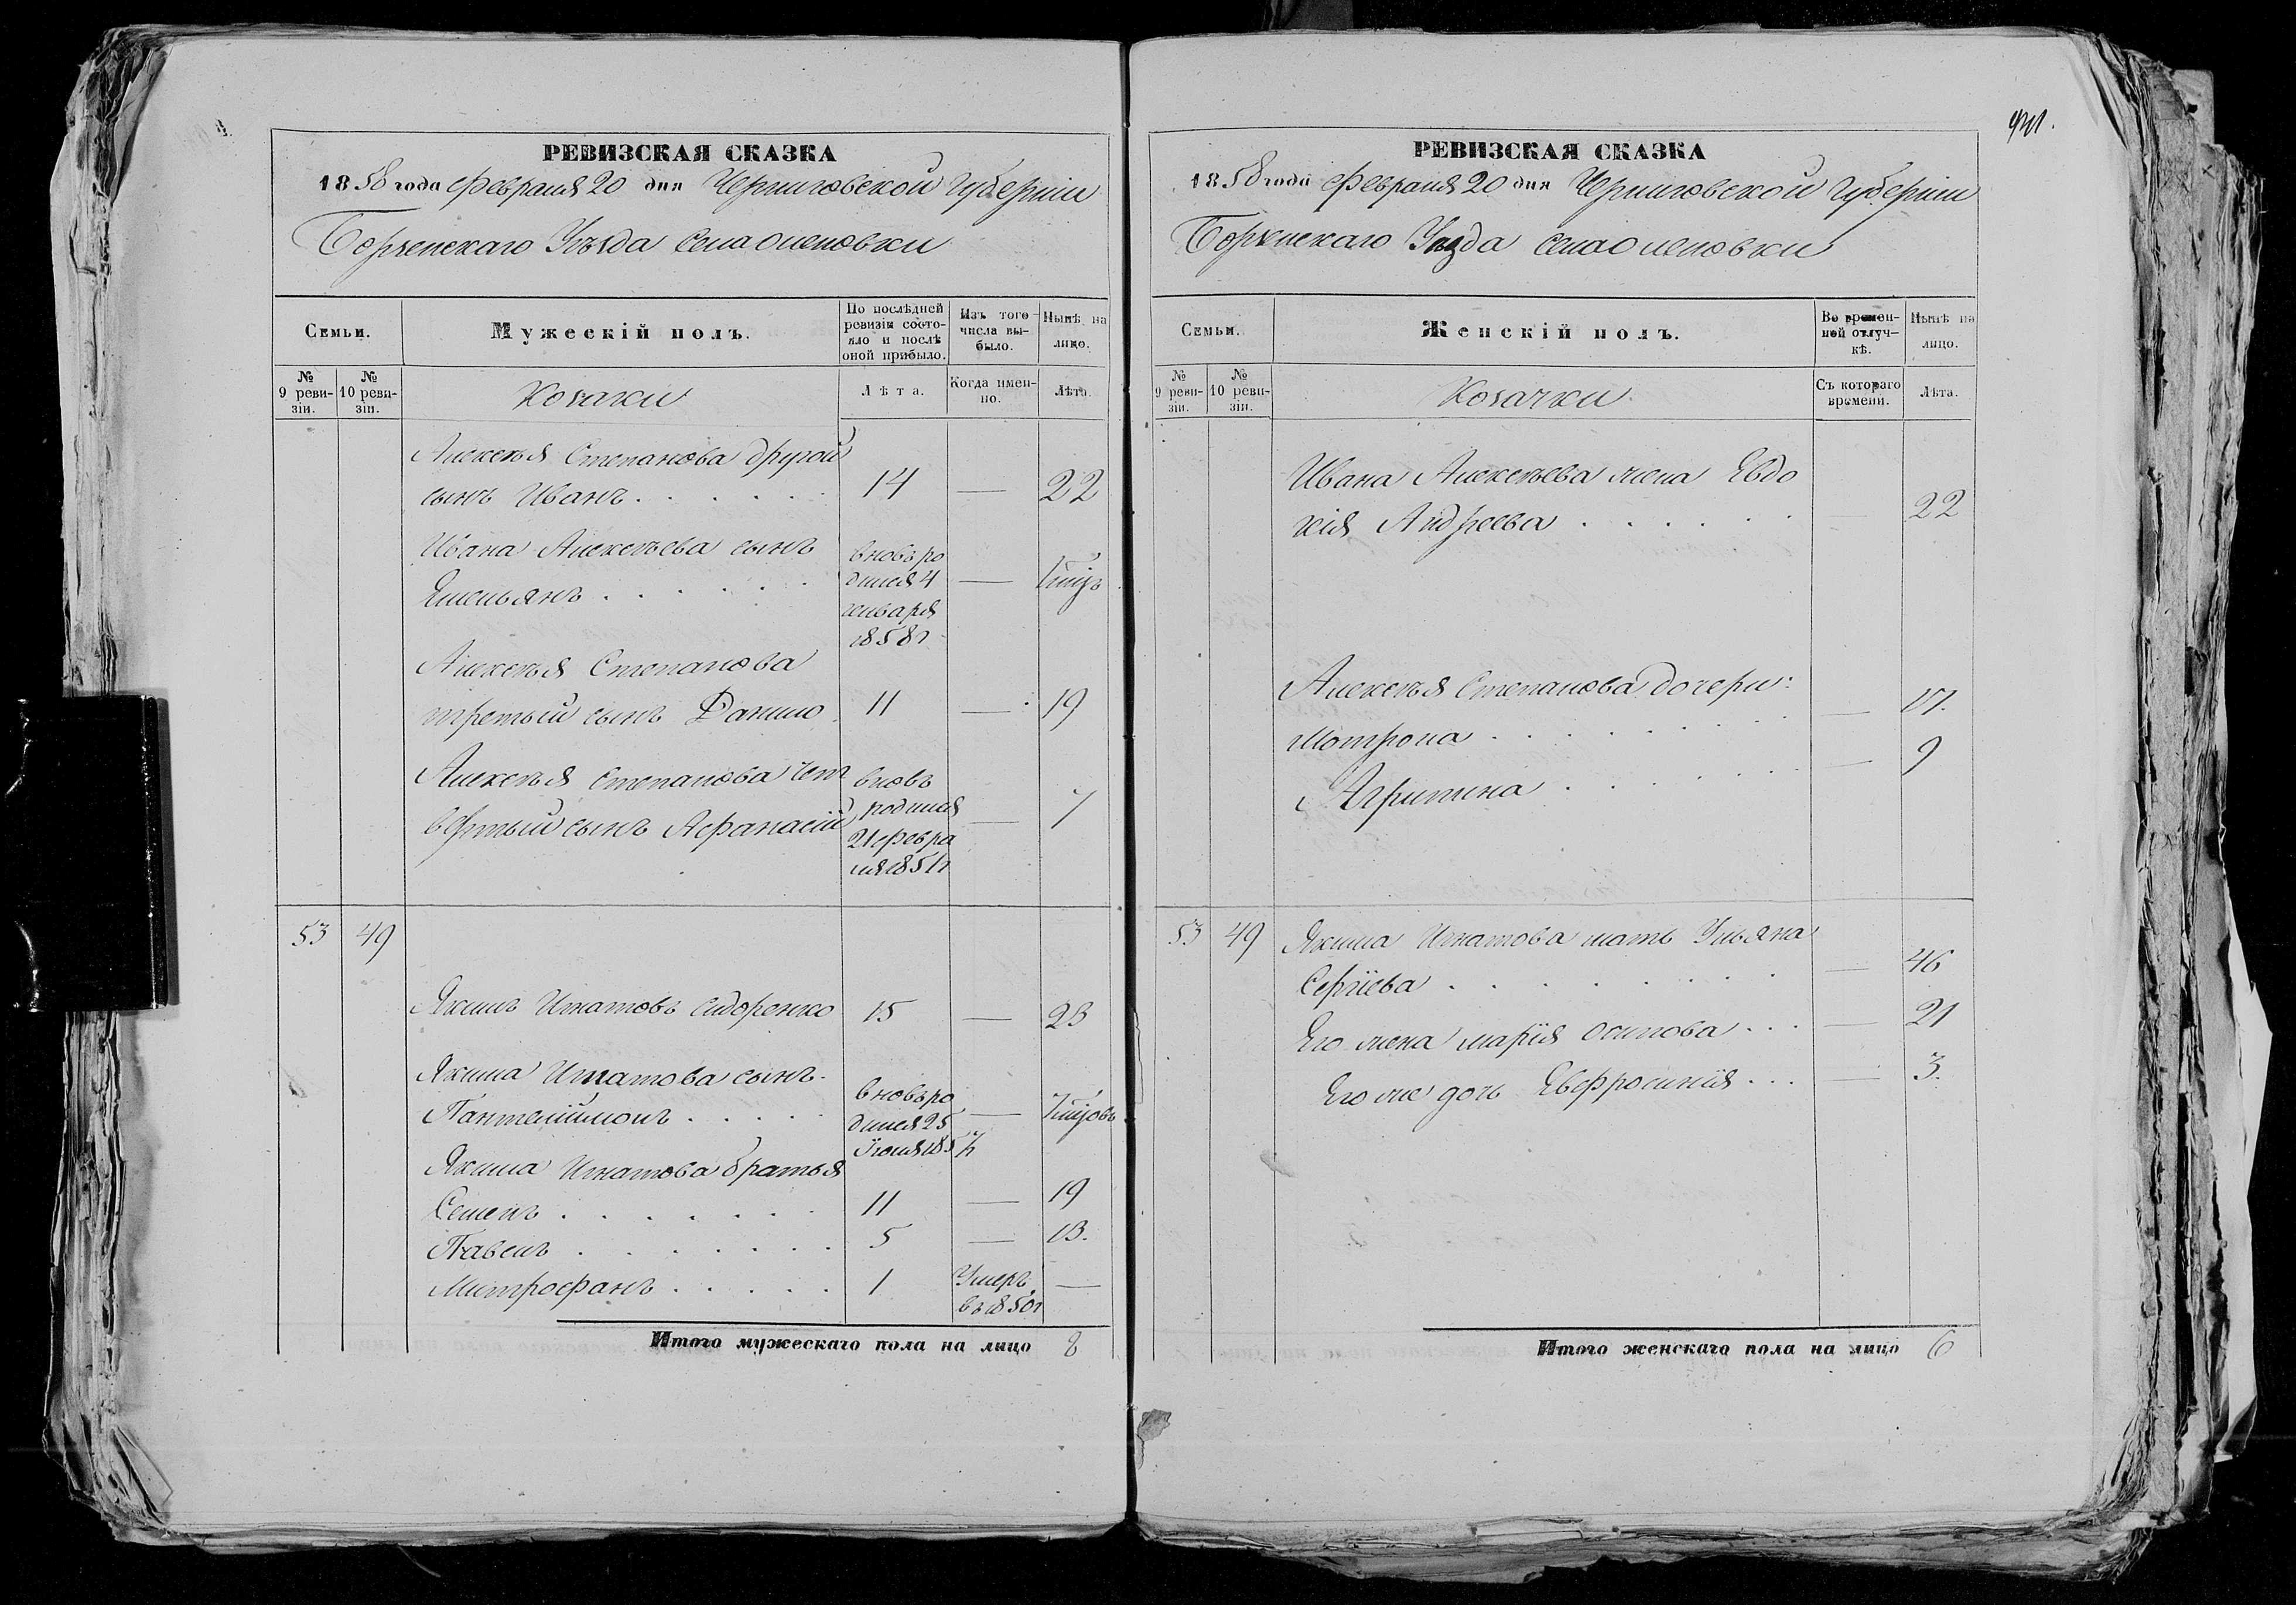 РЕВИЗСКАЯ СКАЗКА
1858 года Февраля 20 дня Черниговской Губернiи
Борзенскаго Уѣзда села Оленовки
Семьи.
Мужескiй полъ.
По послѣдней ревизiи состо-
яло и послѣ
оной прибыло.
Изъ того
числа вы-
было.
Нынѣ на
лицо.
№
9 реви-
зiи.
№
10 реви-
зiи.
Козаки
Лѣта.
Когда имен-
но.
Лѣта.
Алексѣя Степанова другой
сынъ Иванъ . . . . . . 14 — 22
Ивана Алексѣева сынъ
Ямельянъ . . . . .
вновь ро
дился 4
генваря
1858 г
—
Алексѣя Степанова
третый сынъ Данило 11 — 19
Алексѣя Степанова чет
вертый сынъ Афанасiй
вновь
родился
21 февра
ля 1851 г
— 7
53 49
Якимъ Игнатовъ Сидоренко 15 — 23
Якима Игнатова сынъ
Пантелiймонъ . . . .
вновь ро
дился 25
Iюля 1857
—
Якима Игнатова братья
Семенъ . . . . . . . 11 — 19
Павелъ . . . . . . . 5 — 13.
Митрофанъ . . . . . 1 Умеръ —
въ 1850 г
Итого мужескаго пола на лицо 8
941.
РЕВИЗСКАЯ СКАЗКА
1858 года Февраля 20 дня Черниговской Губернiи
Борзенскаго Уѣзда села Оленовки
Семьи.
Женскiй полъ.
Во времен-
ной отлуч-
кѣ.
Нынѣ на
лицо.
№
9 реви-
зiи.
№
10 реви-
зiи.
Козачки
Съ котораго
времени.
Лѣта.
Ивана Алексѣева жена Евдо
кiя Андреева . . . . . . — 22
Алексѣя Степанова дочери:
Мотрона . . . . . . . — 17.
Агрипина . . . . . . — 9
53 49 Якима Игнатова мать Ульяна
Сергiева . . . . . . . — 46
Его жена Марiя Осипова . . . — 21
Его же дочь Евфросинiя . . . — 3.
Итого женскаго пола на лицо 6